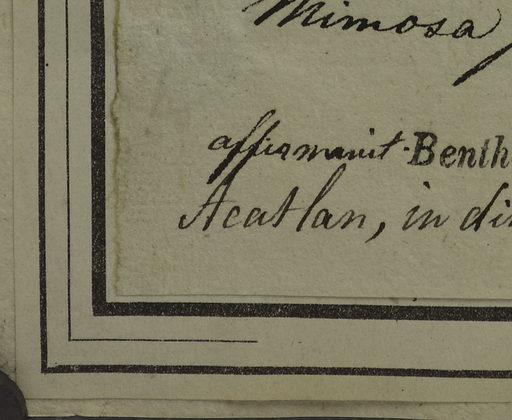 Mimosa
affirmavit Benth
Acatlan, in di